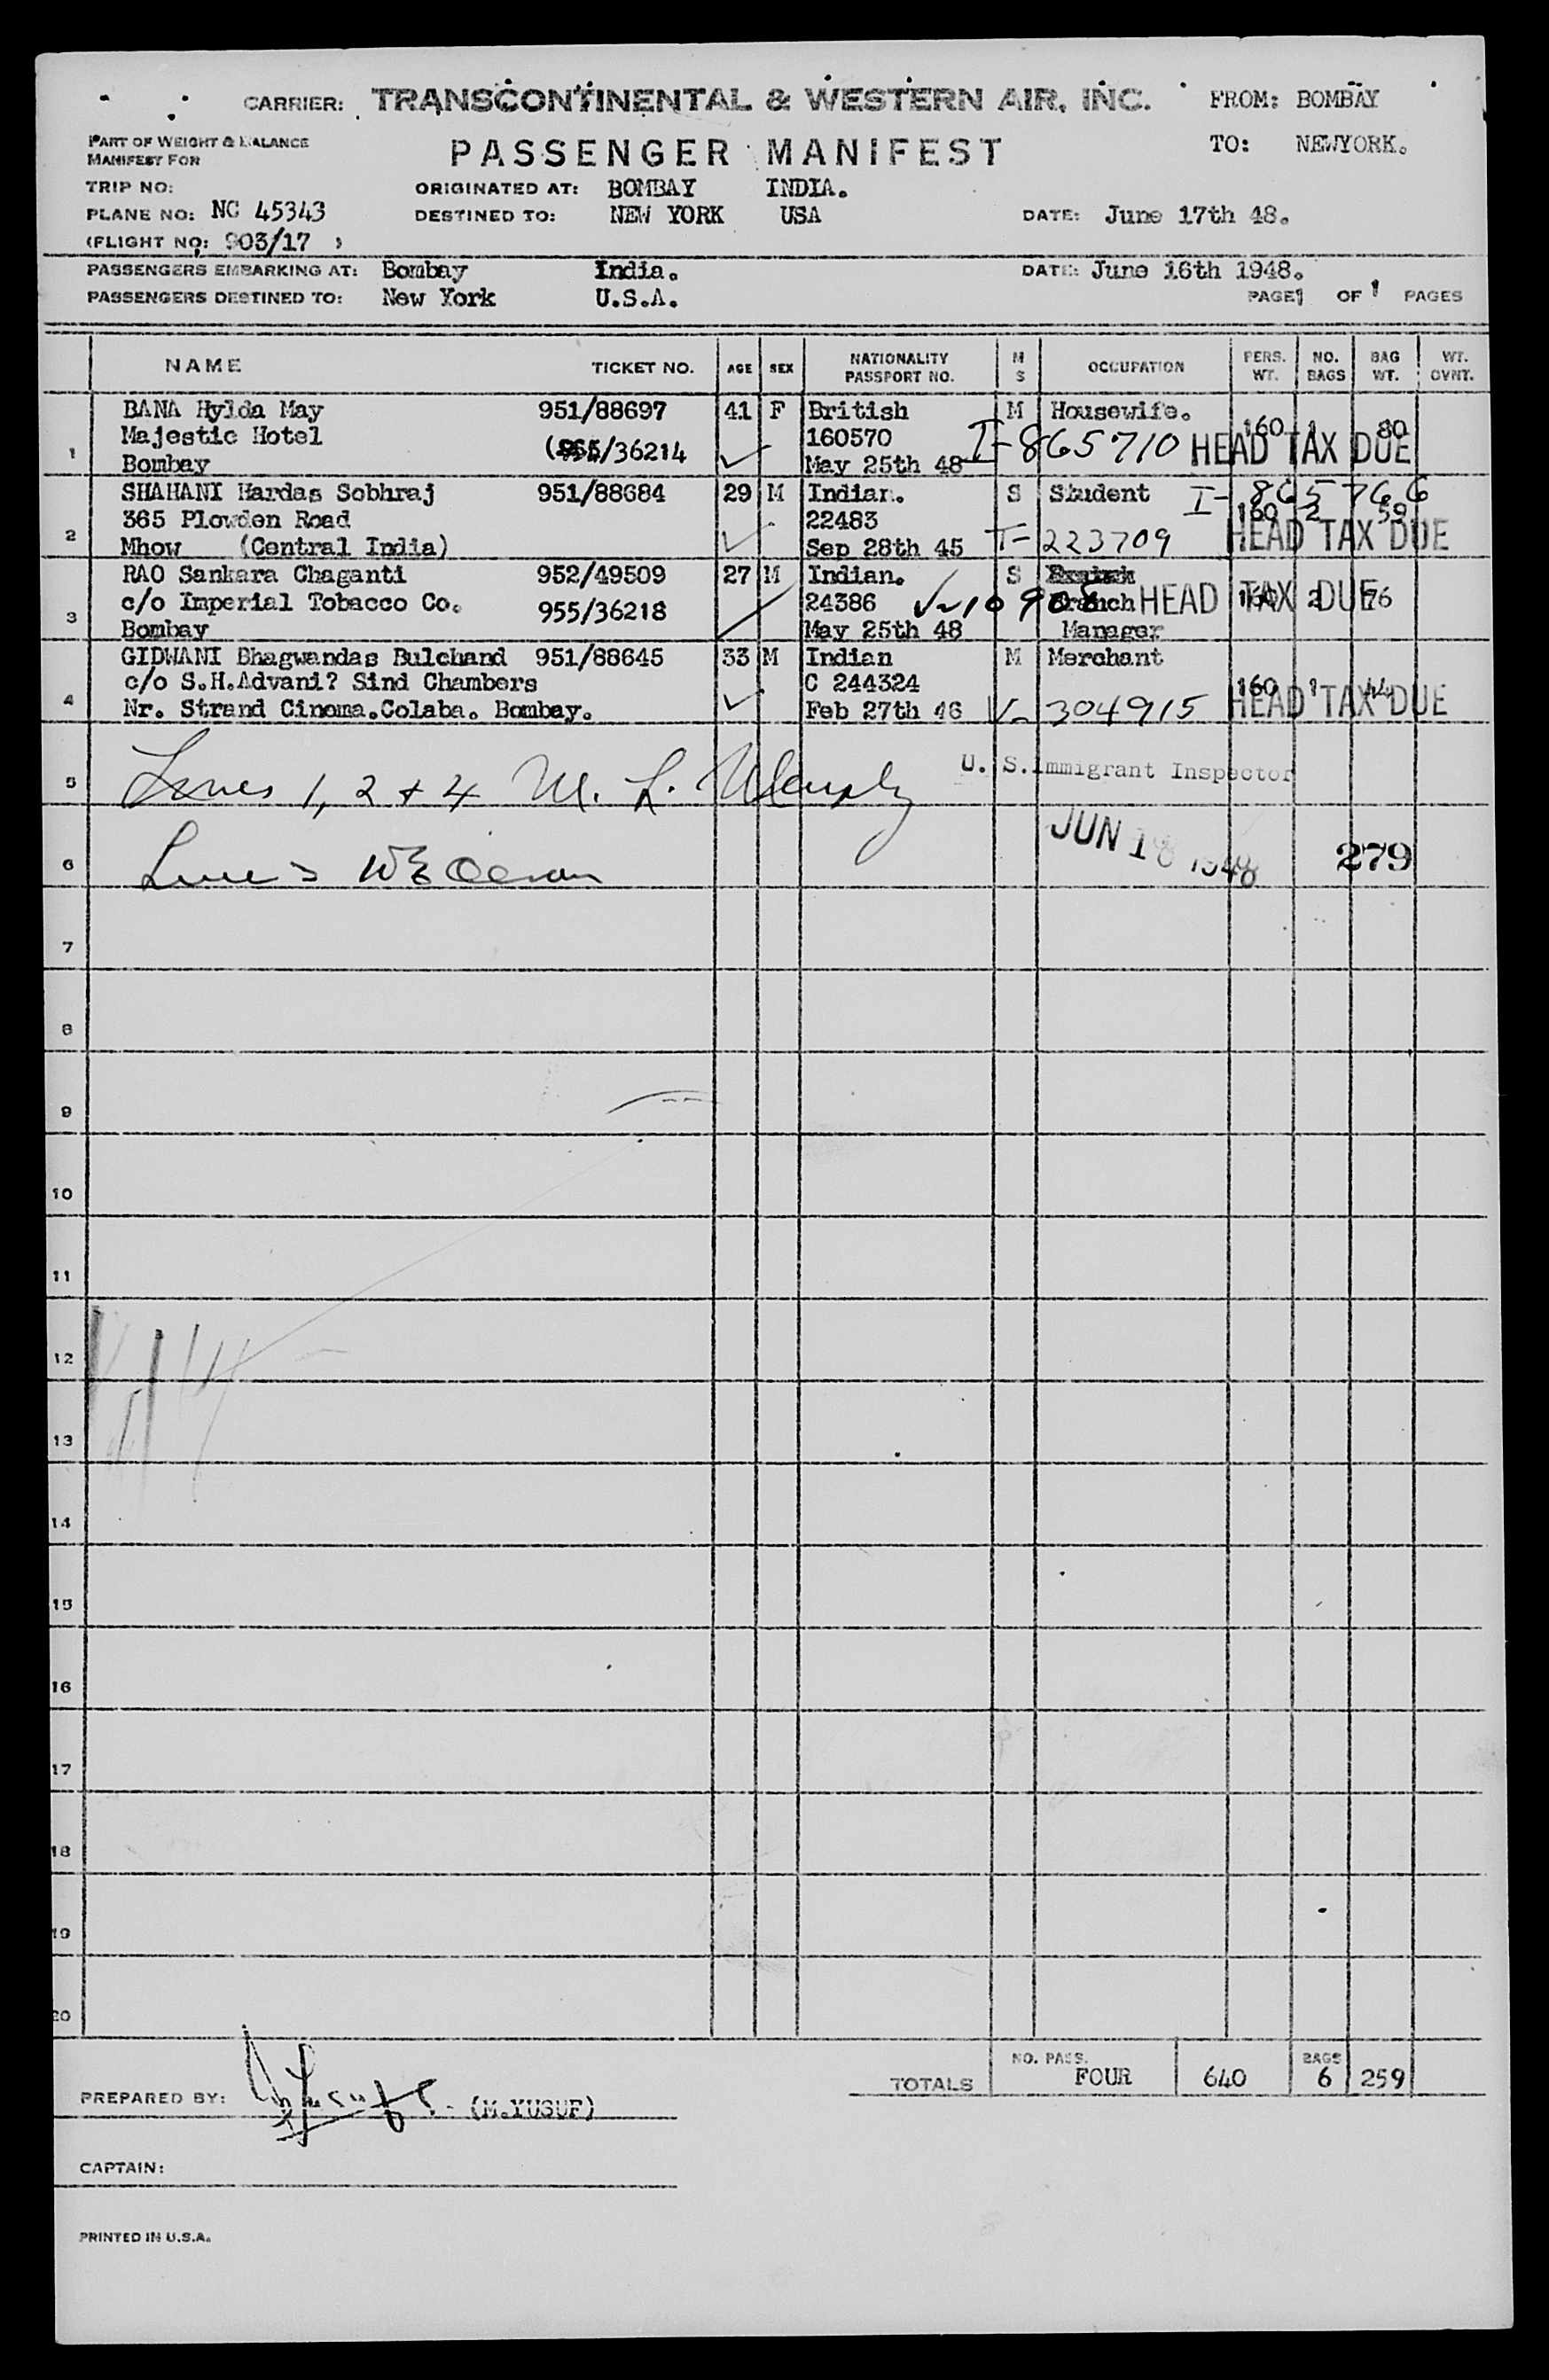 CARRIER: TRANSCONTINENTAL & WESTERN AIR, INC. FROM: BOMBAY
PART OF WEIGHT & BALANCE
MANIFEST FOR
PASSENGER MANIFEST TO: NEWYORK.
TRIP NO: ORIGINATED AT: BOMBAY INDIA.
PLANE NO: NC 45343 DESTINED TO: NEW YORK USA DATE: June 17th 48.
(FLIGHT NO: 903/17 )
PASSENGERS EMBARKING AT: Bombay India. DATE: June 16th 1948.
PASSENGERS DESTINED TO: New York U.S.A. PAGE 1 OF 1 PAGES
NAME TICKET NO. AGE SEX NATIONALITY PASSPORT NO. M S OCCUPATION PERS. WT. NO. BAGS BAG WT. WT. OVNT.
BANA Hylda May 951/88697 41 F British M Housewife.
Majestic Hotel (955/36214 160570 I-865710 HEAD TAX DUE 160 1 80
1 Bombay May 25th 48
SHAHANI Hardas Sobhraj 951/88684 29 M Indian. S Student I-865766
365 Plowden Road 22483 160 2 59
2 Mhow (Central India) Sep 28th 45 T-223709 HEAD TAX DUE
RAO Sankara Chaganti 952/49509 27 M Indian. S
c/o Imperial Tobacco Co. 955/36218 24386 V-10908 Branch HEAD TAX DUE 160 2 76
3 Bombay May 25th 48 Manager
GIDWANI Bhagwandas Bulchand 951/88645 33 M Indian M Merchant
c/o S.H.Advani? Sind Chambers C 244324 160 1 44
4 Nr. Strand Cinema.Colaba. Bombay. Feb 27th 46 V-304915 HEAD TAX DUE
5 Lines 1, 2 + 4 M. L. U.S.Immigrant Inspector
JUN 18 1948
6 Line 3 279
7
8
9
10
11
12
13
14
15
16
17
18
19
20
TOTALS NO. PASS. FOUR 640 BAGS 6 259
PREPARED BY: (M.YUSUF)
CAPTAIN:
PRINTED IN U.S.A.